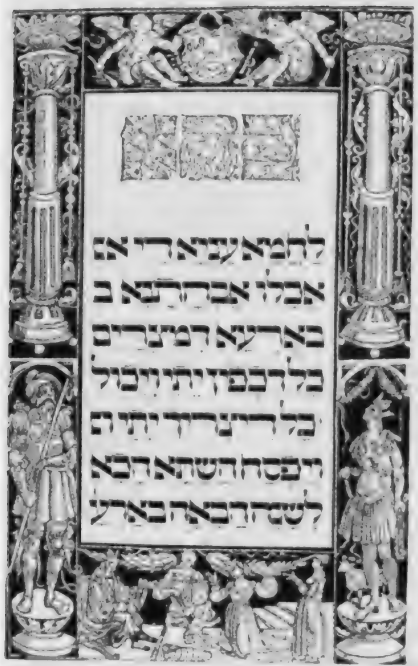 לחמא עניא די אכ
אכלו אבהתנא ב
בארעא דמצרים
כל דכפין יתי ויכול
כל דיצריך יתי וי
ויפסח השתא הכא
לשנה הבאה בארע